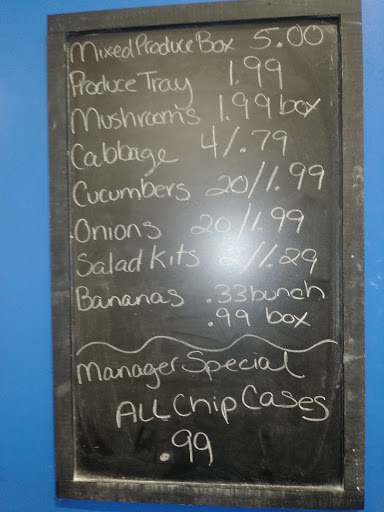 Mixed Produce Box 5.00
Produce Tray 1.99
Mushrooms 1.99 box
Cabbage 4/.79
Cucumbers 20/1.99
Onions 20/1.99
Salad Kits 2/1.29
Bananas .33 bunch
.99 box
Manager Special
ALL Chip Cases
.99